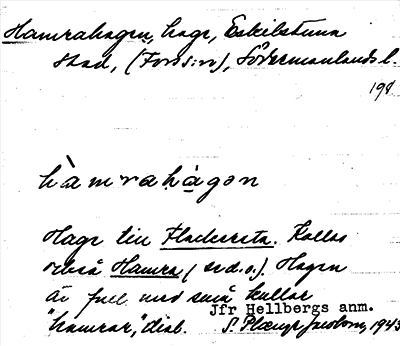 Hamrahagen, hage, Eskilstuna
stad, (Fors:n), Södermanlands l.
198
hàmrahà̱gən
Hage till Fladersta. Kallas
också Hamra (se d.o.). Hagen
är full med små kullar
"hamrar", dial.
Jfr Hellbergs anm.
1943